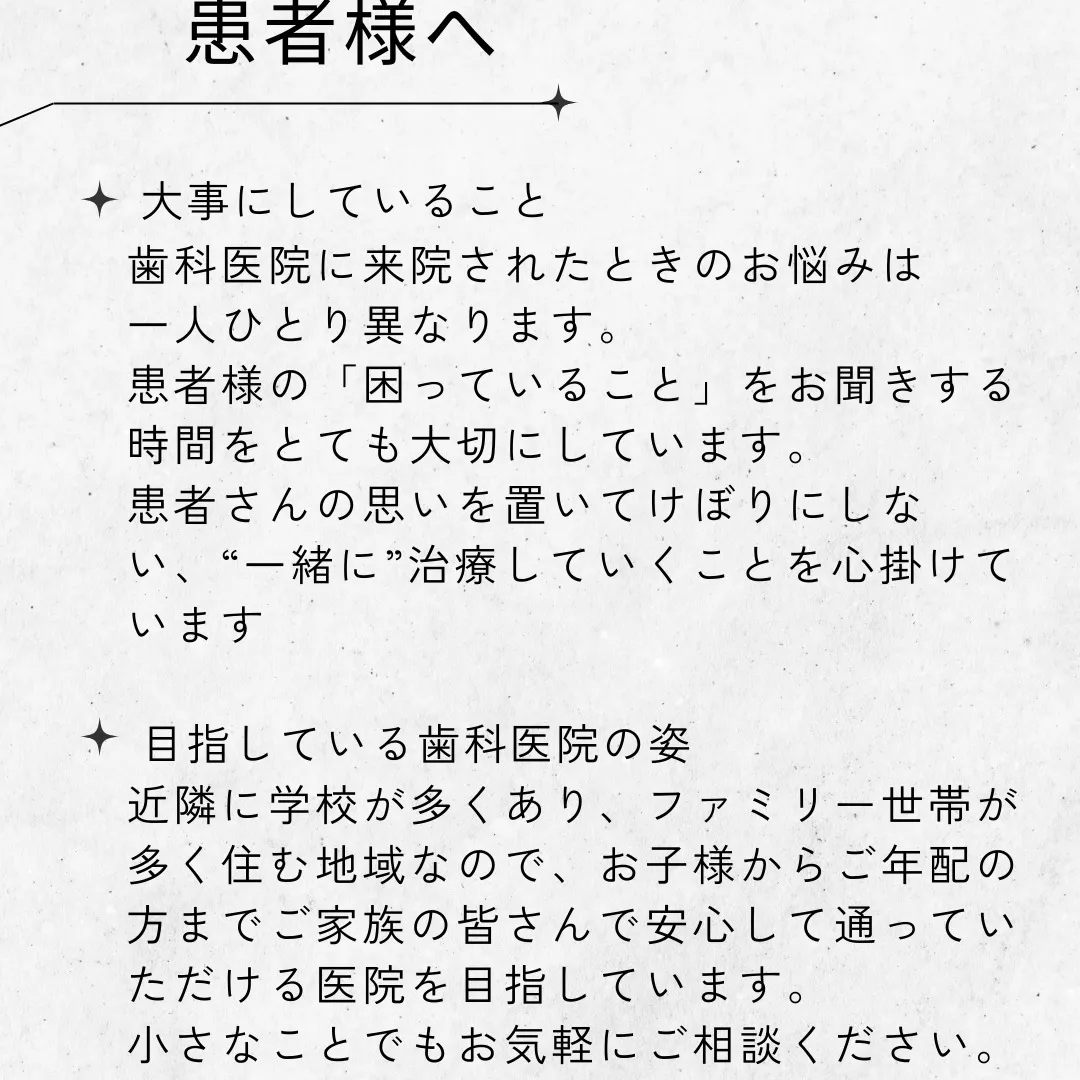 患者様へ
大事にしていること
歯科医院に来院されたときのお悩みは
一人ひとり異なります。
患者様の「困っていること」をお聞きする
時間をとても大切にしています。
患者さんの思いを置いてけぼりにしな
い、“一緒に”治療していくことを心掛けて
います
目指している歯科医院の姿
近隣に学校が多くあり、ファミリー世帯が
多く住む地域なので、お子様からご年配の
方までご家族の皆さんで安心して通ってい
ただける医院を目指しています。
小さなことでもお気軽にご相談ください。